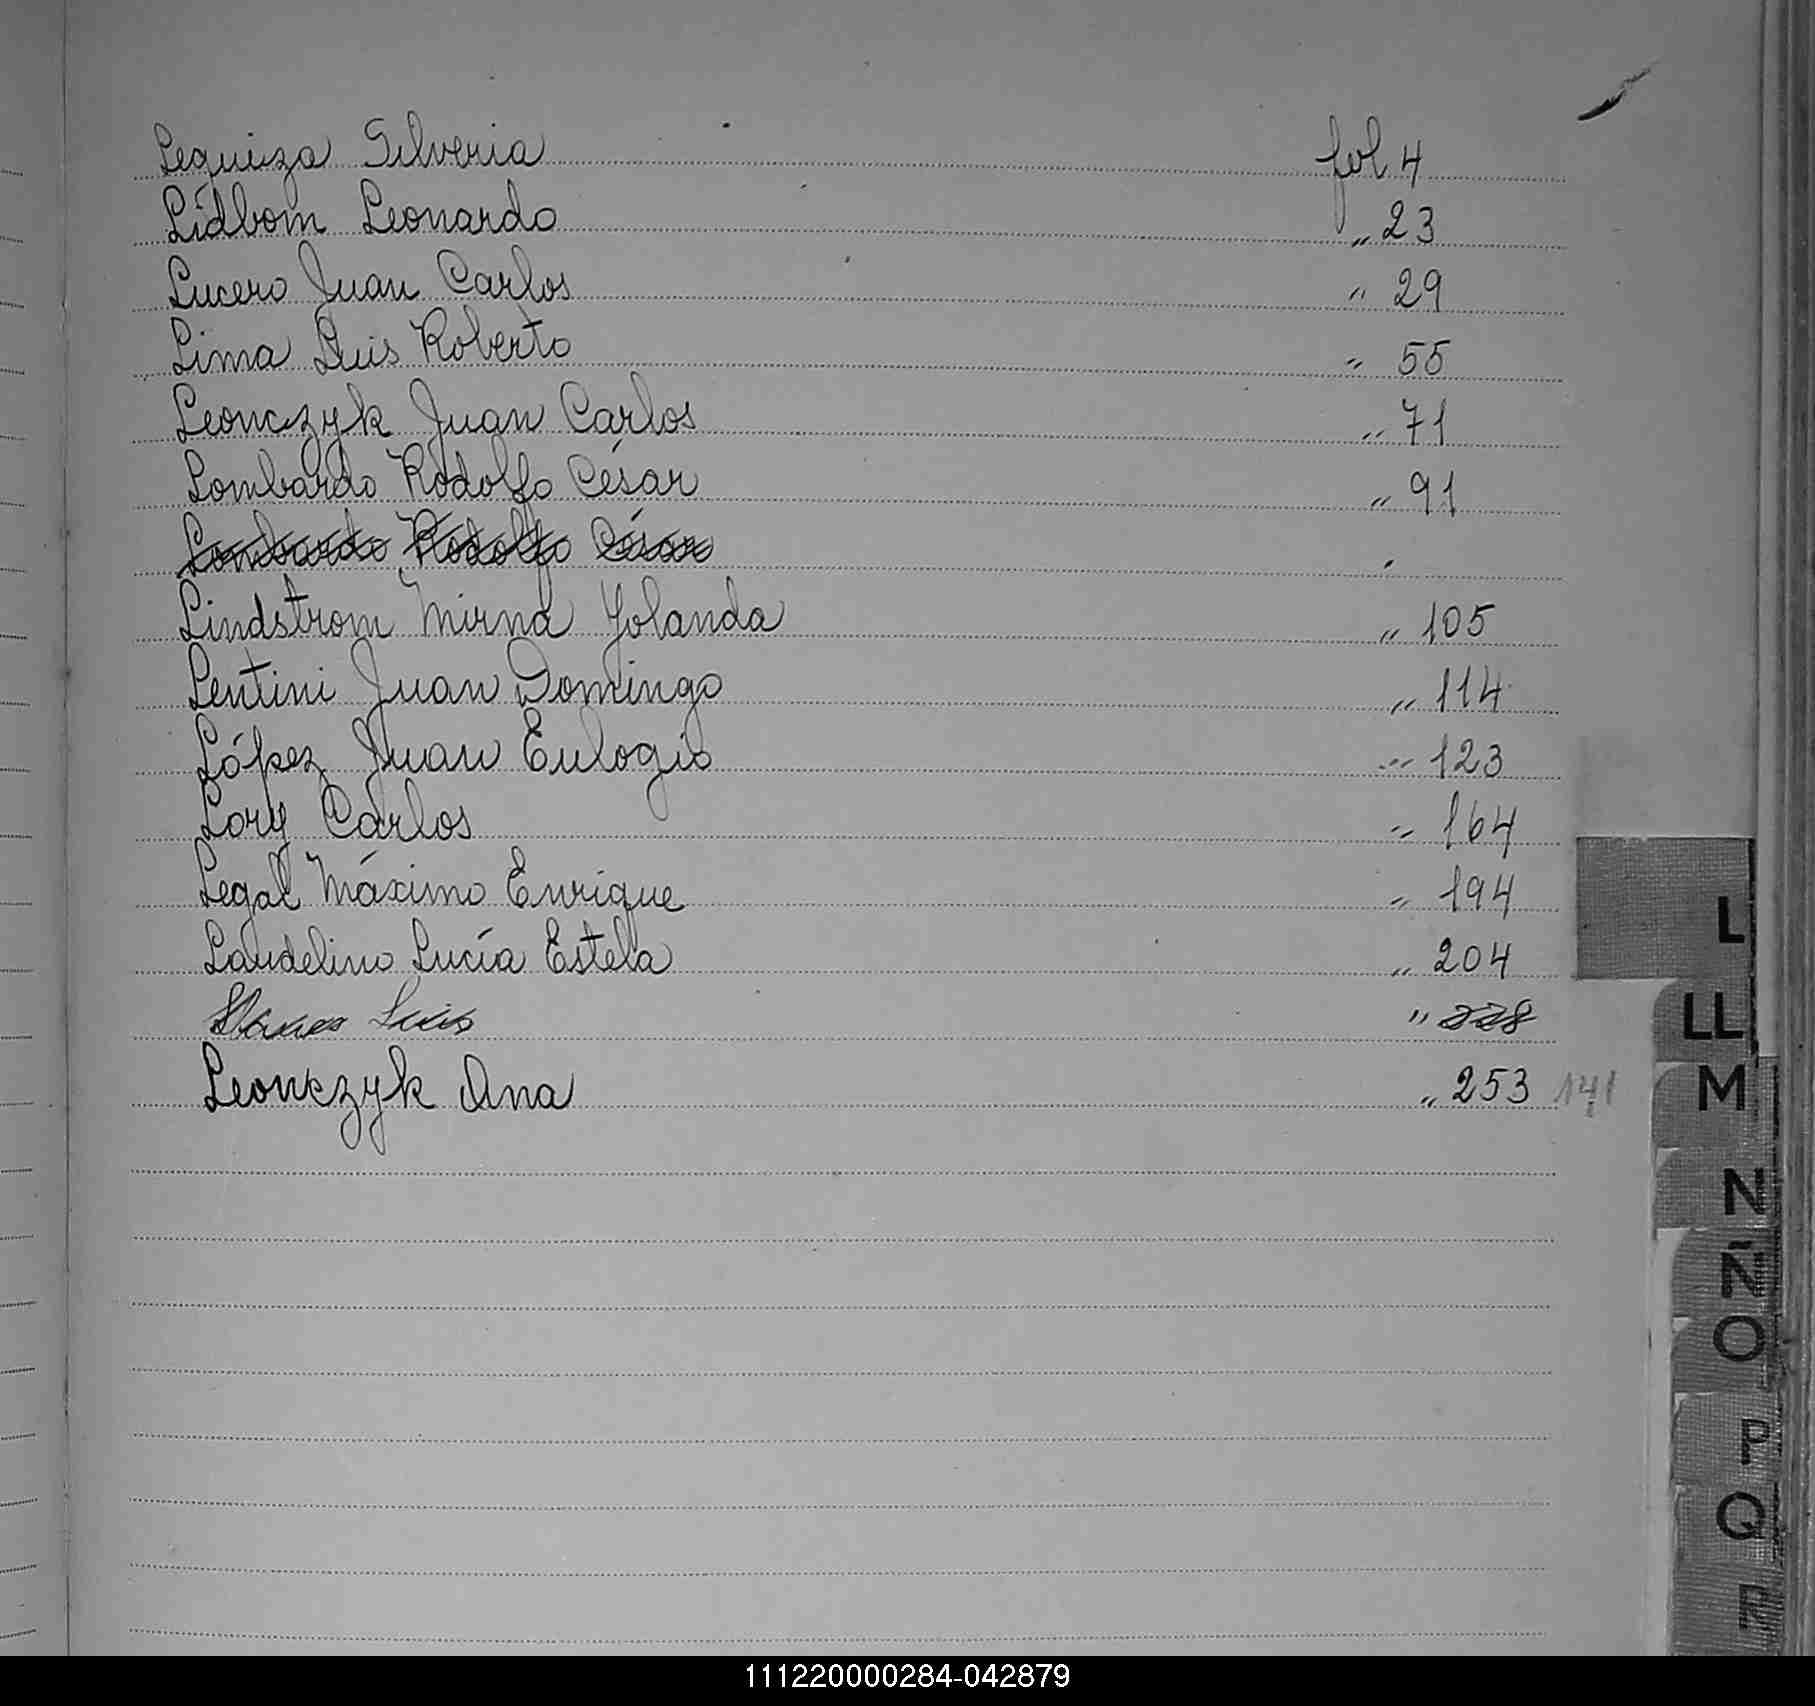 Lequiza Silveria fol 4
Lidbom Leonardo " 23
Lucero Juan Carlos " 29
Lima Luis Roberto " 55
Leonczyk Juan Carlos " 71
Lombardo Rodolfo César " 91
Lombardo Rodolfo César "
Lindstrom Mirna Yolanda " 105
Lentini Juan Domingo " 114
López Juan Eulogio " 123
Lory Carlos " 164
Legal Máximo Enrique " 194
Laudelino Lucía Estela " 204
Luis " 228
Leonczyk Ana " 253 141
L
LL
M
N
Ñ
O
P
Q
R
111220000284-042879